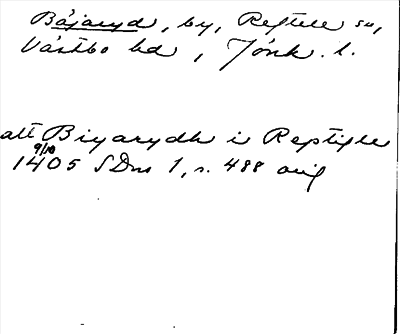 Båjaryd, by, Reftele sn,
Västbo hd, Jönk. l.
att Biyarydh i Reptigle
9/10
1405 SDns 1, s. 488 orig